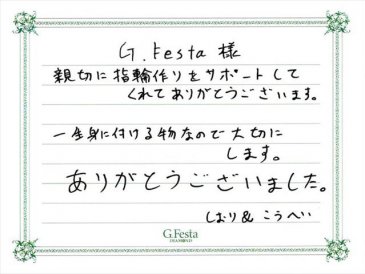 G.Festa 様
親切に指輪作りをサポートして
くれてありがとうございます。
一生身に付ける物なので大切に
します。
ありがとうございました。
しおり & こうへい
G.Festa
DIAMOND